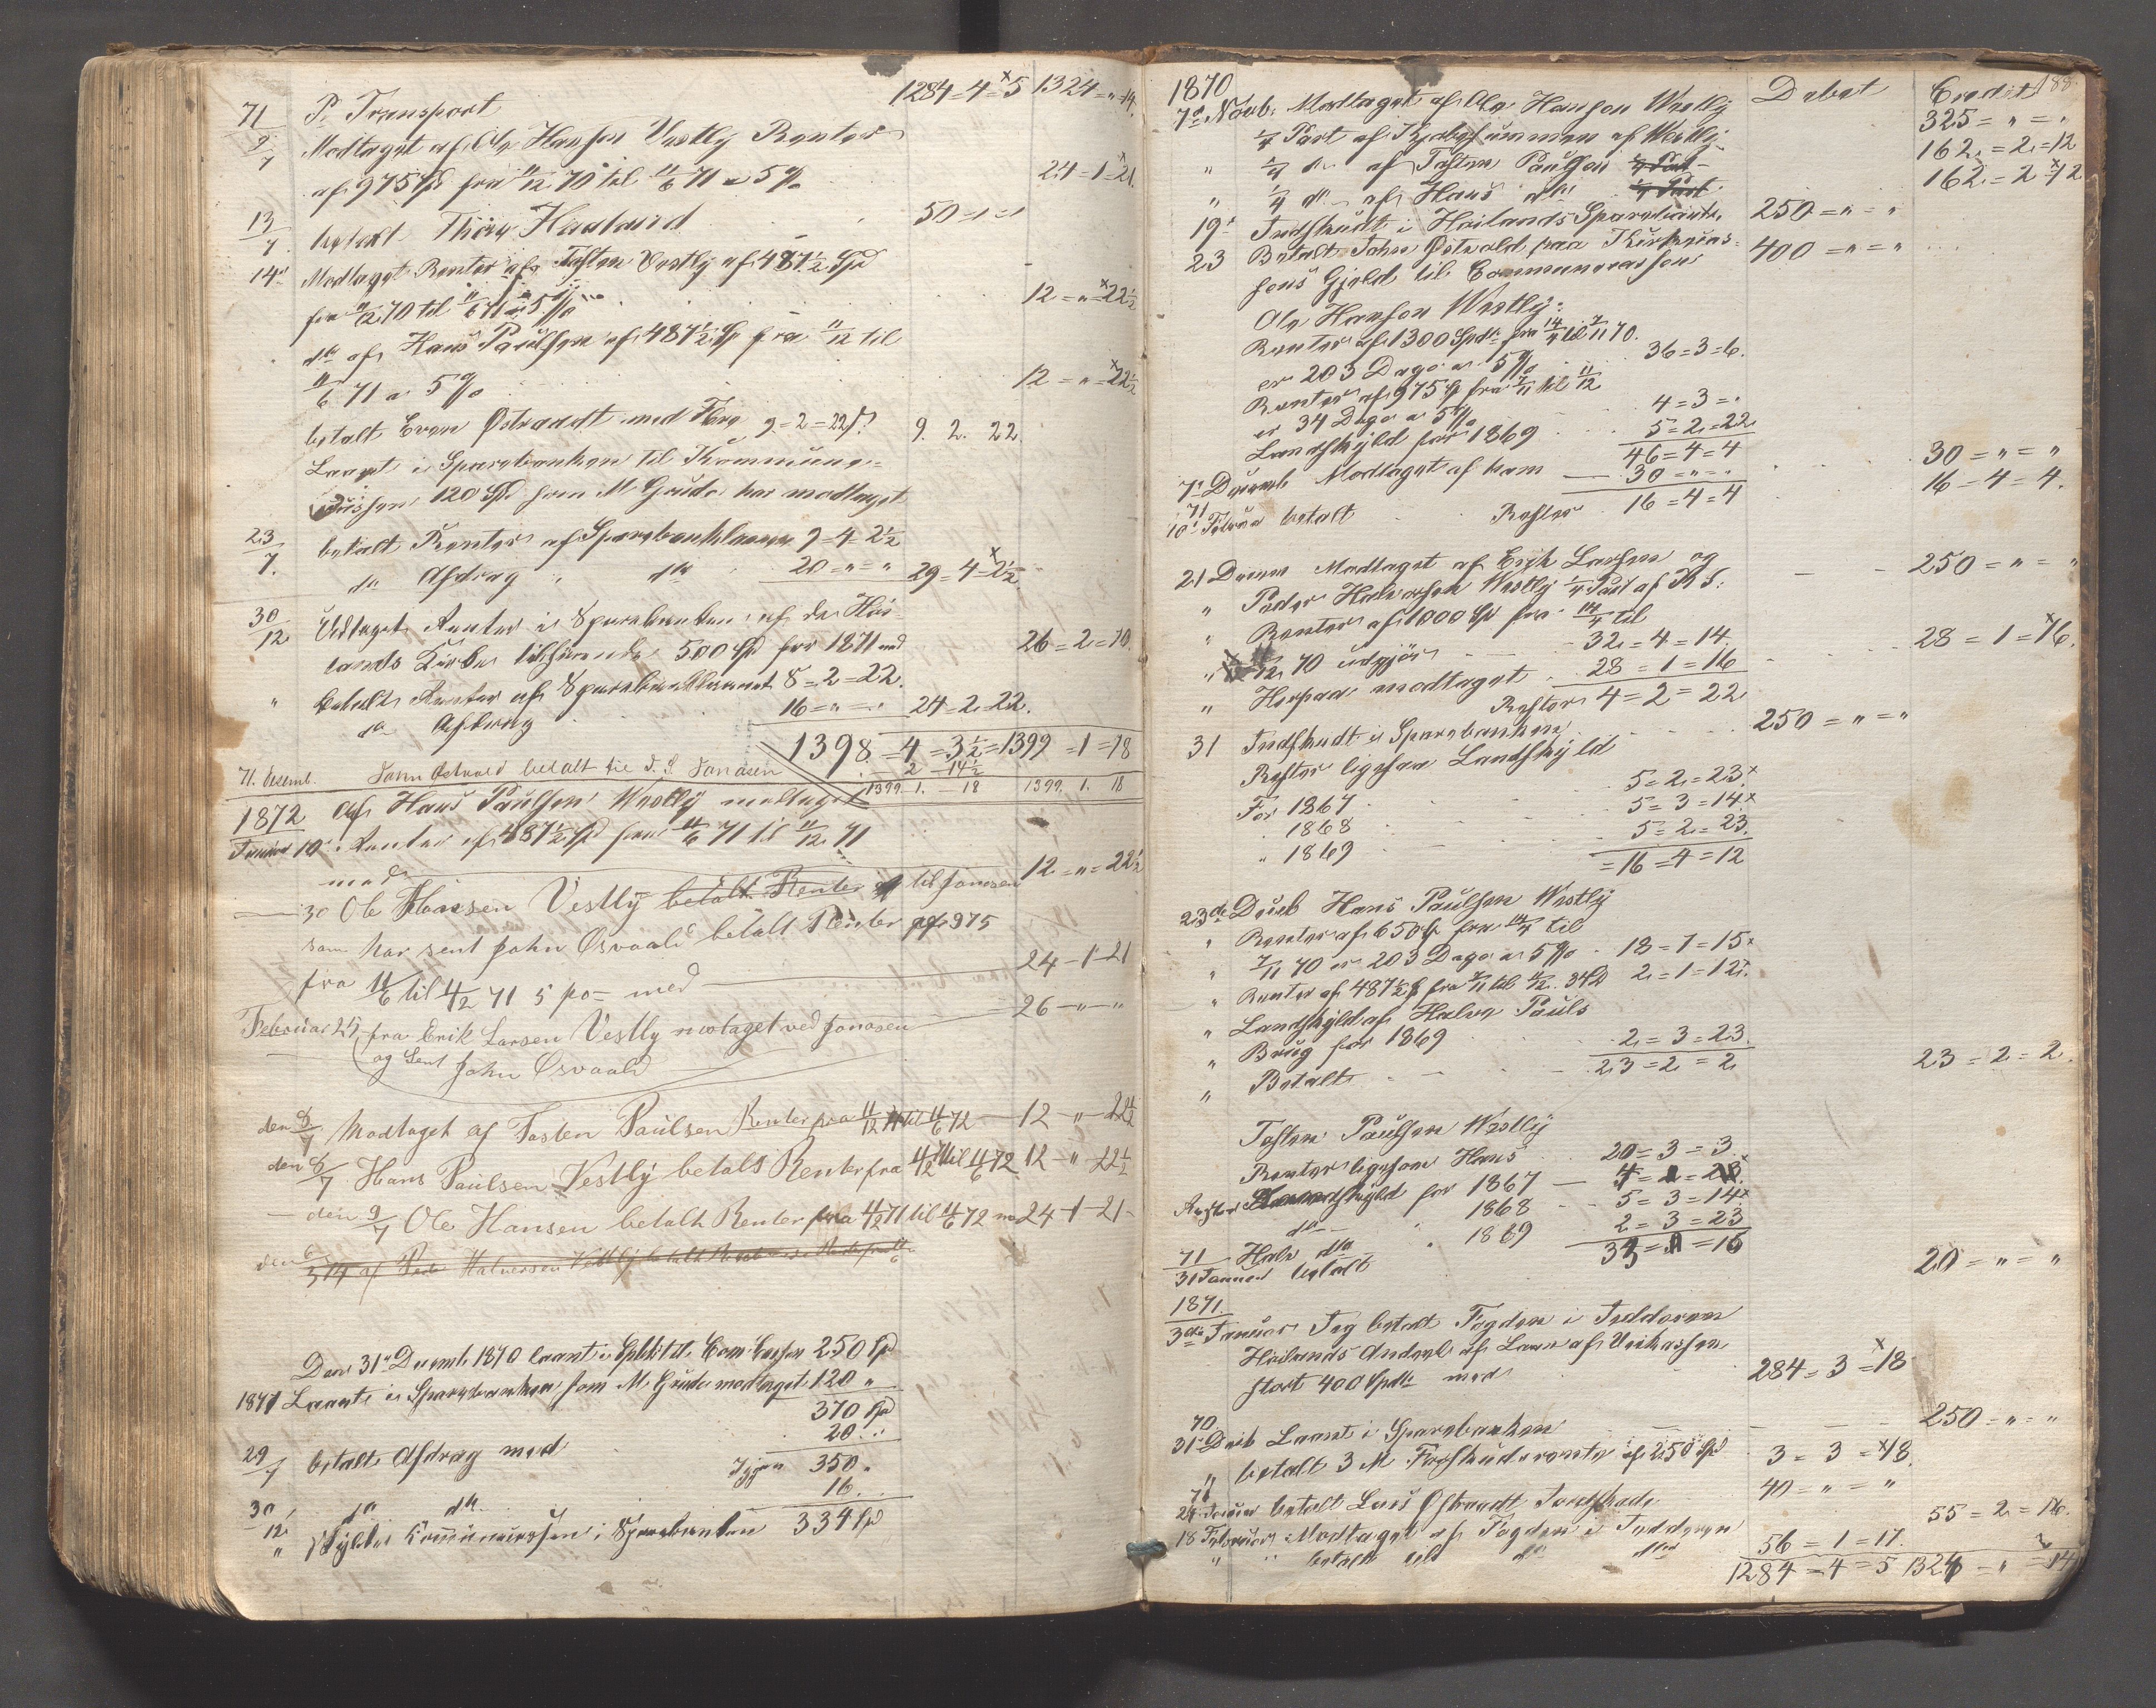 71 Pr Transport 1284 = 4 = 5 1324 = " = 14.
2/7 Modtaget af Ole Hansen Vestly Renter
af 975 Spd fra 11/12 70 til 11/6 71 a 5 % 24 = 1 = 21.
13/7. betalt Thore Haaland 50 = " = "
14de Modtaget Renter af Tosten Vestly af 487½ Spd
fra 11/12 70 til 11/6 71 a 5 % 12 = " = 22½
do af Hans Paulsen af 487½ Sp fra 11/12 til
11/6 71 a 5 % 12 = " = 22½
betalt Even Østraadt med 9 = 2 = 22 9. 2. 22.
Laant i Sparebanken til Kommune=
cassen 120 Spd som M Grude har modtaget
23/7. betalt Renter af Sparebanklaanet 9 = 4 = 2½
do Afdrag " do 20 = " = " 29 = 4 = 2½
30/12 Udtaget Renter i Sparebanken af de Høi-
lands Kirke tilhørende 500 Spd for 1871 med 26 = 2 = 10.
" betalt Renter af Sparebanklaanet 8 = 2 = 22.
do Afdrag 16 = " = " 24 = 2 = 22.
1398 = 4 = 3½ = 1399 = 1 = 18
71. Decemb. John Østvold betalt til J. S. Jonasen 2 - 14½
1399. 1. - 18 1399. 1. 18
1872 af Hans Paulsen Westly modtaget
Januar 10de Renter af 487½ Spd fra 11/6 71 til 11/12 71
med 12 = " = 22½
30 Ole Hansen Vestly betalt Renter af til Jonasen
som har sent John Osvaald betalt Renter af 975
fra 11/6 til 11/12 71 5 po- med 24 - 1 - 21
Februar 25 fra Erik Larsen Vestly motaget ved Jonasen 26 - " - "
og Sent John Osvaald
den 8/7 Modtaget af Tosten Paulsen Renter fra 11/12 71 til 11/6 72 12 - " - 22½
den 8/7 Hans Paulsen Vestly betalt Renter fra 11/12 71 til 11/6 72 12 - " - 22½
den 9/7 Ole Hansen betalt Renter fra 11/12 71 til 11/6 72 m 24 - 1 - 21 -
Den 31te Decemb 1870 laant i Spbk til Com Cassen 250 Spd
1871 Laant i Sparebanken som M. Grude modtaget 120 "
370 Spd
29/7 betalt Afdrag med 20. "
Igjen 350 "
30/12 do do 16. .
" skylder Communecassen i Sparebanken 334 Spd
1870 Debet Credit 188.
7de Novb. Modtaget af Ole Hansen Westly
¼ Part af Kjøbesummen af Westly 325 = " = "
" ¼ do af Tosten Paulsen ¼ Part 162 = 2 = 12
" ¼ do af Hans do ¼ Part 162 = 2 = 12
19de Indskudt i Høilands Sparebank 250 = " = "
23 Betalt John Østvold paa
sens Gjeld til Communecassen 400 = " = "
Ole Hansen Westly:
Renter af 1300 Spd fra 14/4 til 7/11 70.
er 203 Dage a 5 % 36 = 3 = 6.
Renter af 975 Sp fra 7/11 til 11/12
er 34 Dage a 5 % 4 = 3 = "
Landskyld for 1869 5 = 2 = 22
46 = 4 = 4
7de Decemb Modtaget af ham 30 = " = " 30 = " = "
71 Rester 16 = 4 = 4
10de Februar betalt 16 = 4 = 4.
21 Decem Modtaget af Erik Larsen og
" Peder Halvorsen Westly ¼ Part af K S. 250 = " = "
" Renter af 1000 Sp fra 14/4 til
" 11/12 70 udgjør 32 = 4 = 14
" Herpaa modtaget 28 = 1 = 16 28 = 1 = 16.
Rester 4 = 2 = 22
31 Indskudt i Sparebanken 250 = " = "
Rester ligesaa Landskyld
For 1867 5 = 2 = 23
" 1868 5 = 3 = 14
" 1869 5 = 2 = 23
= 16 = 4 = 12
23de Decb Hans Paulsen Westly
" Renter af 650 Sp fra 14/4 til
" 7/11 70 er 203 Dage a 5 % 18 = 1 = 15
" Renter af 487½ Sp fra 7/11 til 11/12. 34 D 2 = 1 = 12.
" Landskyld af Halvor Pauls
" Brug for 1869 2 = 3 = 23.
" Betalt 23 = 2 = 2 23 = 2 = 2.
Tosten Paulsen Westly
Renter ligesom Hans 20 = 3 = 3
Rester Landskyld for 1867
do 1868 5 = 3 = 14
Halv do " 1869 2 = 3 = 23
71
31 Januar betalt 20 = " = "
1871.
3die Januar Jeg betalt Fogden i Jædderen
Høilands Andeel af Laan af Veikassen
stort 400 Spdlr med 284 = 3 = 18
70
31te Decb Laant i Sparebanken 250 = " = "
" betalt 3 M Forskudsrente af 250 Spd 3 = 3 = 18
71
24 Januar betalt Lars Østraadt 40 = " = "
18 Februar Modtaget af Fogden i Jædderen 55 = 2 = 16.
" " betalt til do do 56 = 1 = 17.
1284 = 4 = 5 1324 = " = 14